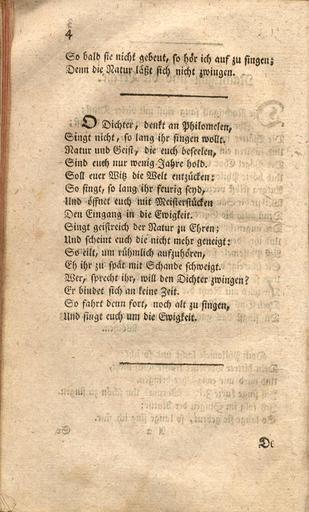 4
So bald sie nicht gebeut, so hör ich auf zu singen;
Denn die Natur läßt sich nicht zwingen.
O Dichter, denkt an Philomelen,
Singt nicht, so lang ihr singen wollt.
Natur und Geist, die euch beseelen,
Sind euch nur wenig Jahre hold.
Soll euer Witz die Welt entzücken;
So singt, so lang ihr feurig seyd,
Und öffnet euch mit Meisterstücken
Den Eingang in die Ewigkeit.
Singt geistreich der Natur zu Ehren;
Und scheint euch die nicht mehr geneigt:
So eilt, um rühmlich aufzuhören,
Eh ihr zu spät mit Schande schweigt.
Wer, sprecht ihr, will den Dichter zwingen?
Er bindet sich an keine Zeit.
So fahrt denn fort, noch alt zu singen,
Und singt euch um die Ewigkeit.